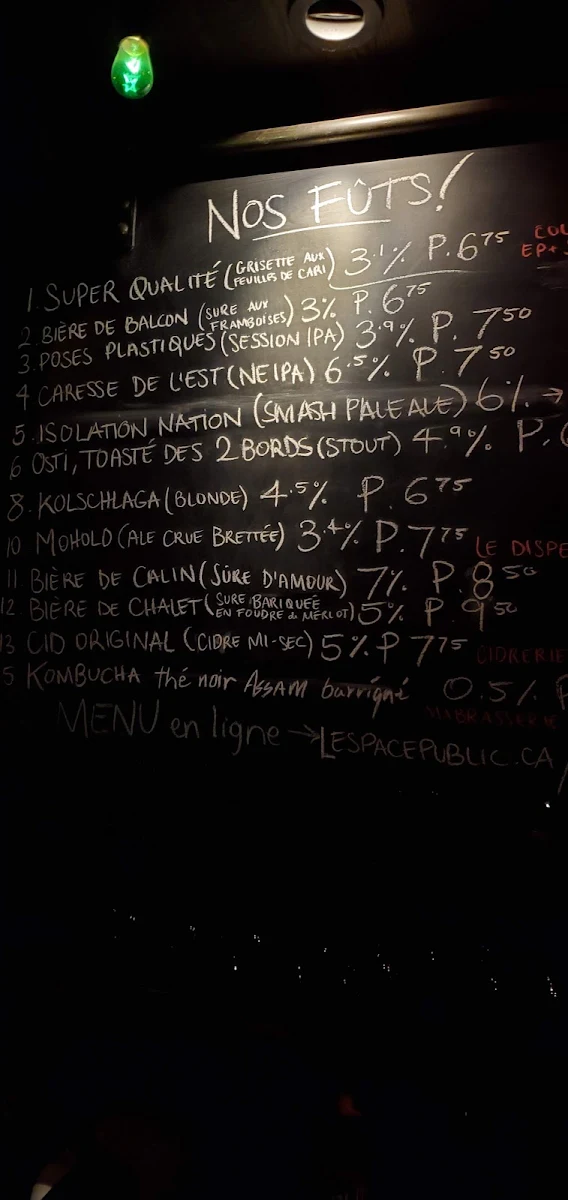 NOS FÛTS!
1. SUPER QUALITÉ (GRISETTE AUX FEUILLES DE CARI) 3.1% P. 6 75
2. BIÈRE DE BALCON (SURE AUX FRAMBOISES) 3% P. 6 75
3. POSES PLASTIQUES (SESSION IPA) 3.9% P. 7 50
4 CARESSE DE L'EST (NEIPA) 6.5% P. 7 50
5. ISOLATION NATION (SMASH PALE ALE) 6% →
6 OSTI, TOASTÉ DES 2 BORDS (STOUT) 4.9% P.
8. KOLSCHLAGA (BLONDE) 4.5% P. 6 75
10 MOHOLD (ALE CRUE BRETTÉE) 3.4% P. 7 75 LE DISPE
11 BIÈRE DE CALIN (SÛRE D'AMOUR) 7% P. 8 50
12. BIÈRE DE CHALET (SURE BARIQUÉE EN FOUDRE de MERLOT) 5% P. 9 50
13 CID ORIGINAL (CIDRE MI-SEC) 5% P 7 75 CIDRERIE
5 KOMBUCHA thé noir ASSAM barriqué 0.5% P
MENU en ligne → LESPACEPUBLIC.CA